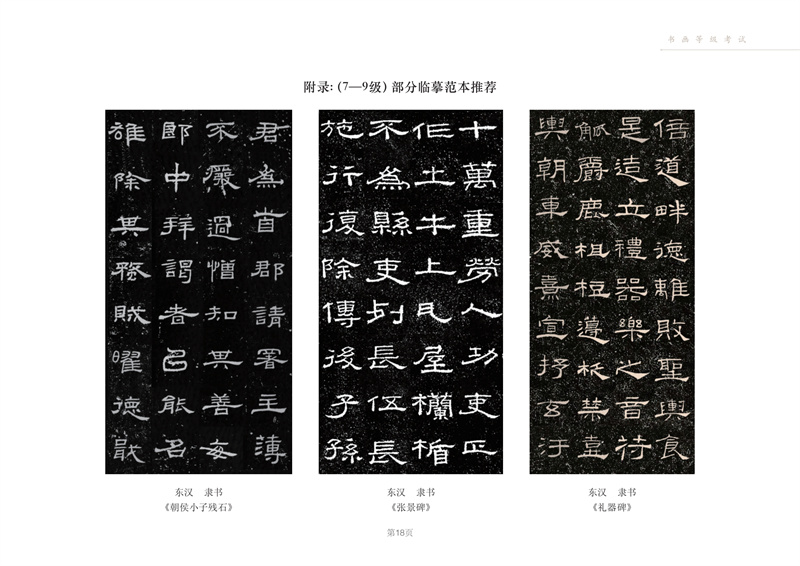 书画等级考试
附录：（7—9级）部分临摹范本推荐
君為首郡請署主薄
不嚴過憎知其善每
郎中拜謁者以能名
雄除其務賊曜德戢
十萬重勞人功吏正
作土牛上瓦屋欄楯
不為縣吏列長伍長
施行復除傳後子孫
倍道畔德離敗聖輿食
是造立禮器樂之音符
觚爵鹿柤梪籩柉禁壺
輿朝車威熹宣抒玄汙
东汉 隶书
《朝侯小子残石》
东汉 隶书
《张景碑》
东汉 隶书
《礼器碑》
第18页